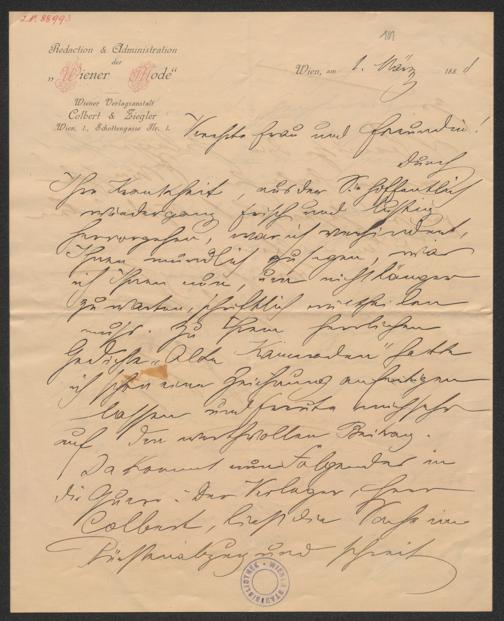 I.N. 88993
101
Redaction & Administration
der
„Wiener Mode“
Wiener Verlagsanstalt
Colbert & Ziegler
Wien, I., Schottengasse Nr. 1.
Wien, am 1. März 188
Verehrte Frau und Freundin!
Durch
Ihre Krankheit, aus der Sie hoffentlich
wieder ganz frisch und lustig
hervorgehen, war ich verhindert,
Ihnen mündlich zu sagen, was
ich Ihnen nun, um nicht länger
zu warten, schriftlich mittheilen
muß. Zu Ihrem herrlichen
Gedichte „Alte Kameraden“ hatte
ich schon eine Zeichnung anfertigen
lassen und freute mich sehr
auf den werthvollen Beitrag.
Da kommt nun Folgendes in
die Quere: Der Verleger, Herr
Colbert, liest die Sache im
Bürstenabzug und schreit
WIENER STADTBIBLIOTHEK